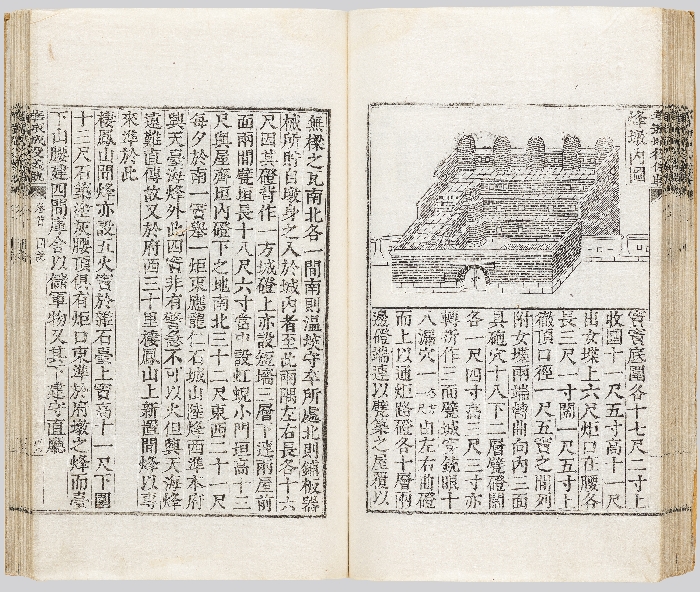 華城城役儀軌
烽墩內圖
竇竇底圍各十七尺二寸上
收圍十一尺五寸高十一尺
出女堞上六尺炬口在腰各
長三尺一寸闊一尺五寸上
徹頂口徑一尺五竇之間列
附女堞兩端彎曲向內三面
具砲穴十八下二層甓磴闊
各一尺四寸高三尺三寸亦
轉折作三面甓城穿銃眼十
八漏穴一左右曲磴
而上以通炬路磴各十層兩
邊磴端連以甓築之屋覆以
無樑之瓦南北各一間南則溫堗守卒所處北則鎮板器
械所貯自墩身之入於城內者至此兩隅左右長各十六
尺因其磴背作一方城磴上亦設短墻三層下連兩屋前
面兩間甓垣長十八尺六寸當中設虹蜺小門垣高十三
尺與屋齊垣內磴下之地南北三十二尺東西二十一尺
每夕於南一竇擧一炬東應龍仁石城山陸烽西準本府
興天臺海烽外此四竇非有警急不可以火但興天海烽
遠難直傳故又於府西三十里棲鳳山上新置間烽以爲
來準於此
棲鳳山間烽亦設五火竇於雜石臺上竇高十一尺下圍
十三尺石築塗灰腰頂俱有炬口東準於府墩之烽而臺
下山腰建四間庫舍以儲軍物又其下建守直廳
華城城役儀軌
卷首 圖說